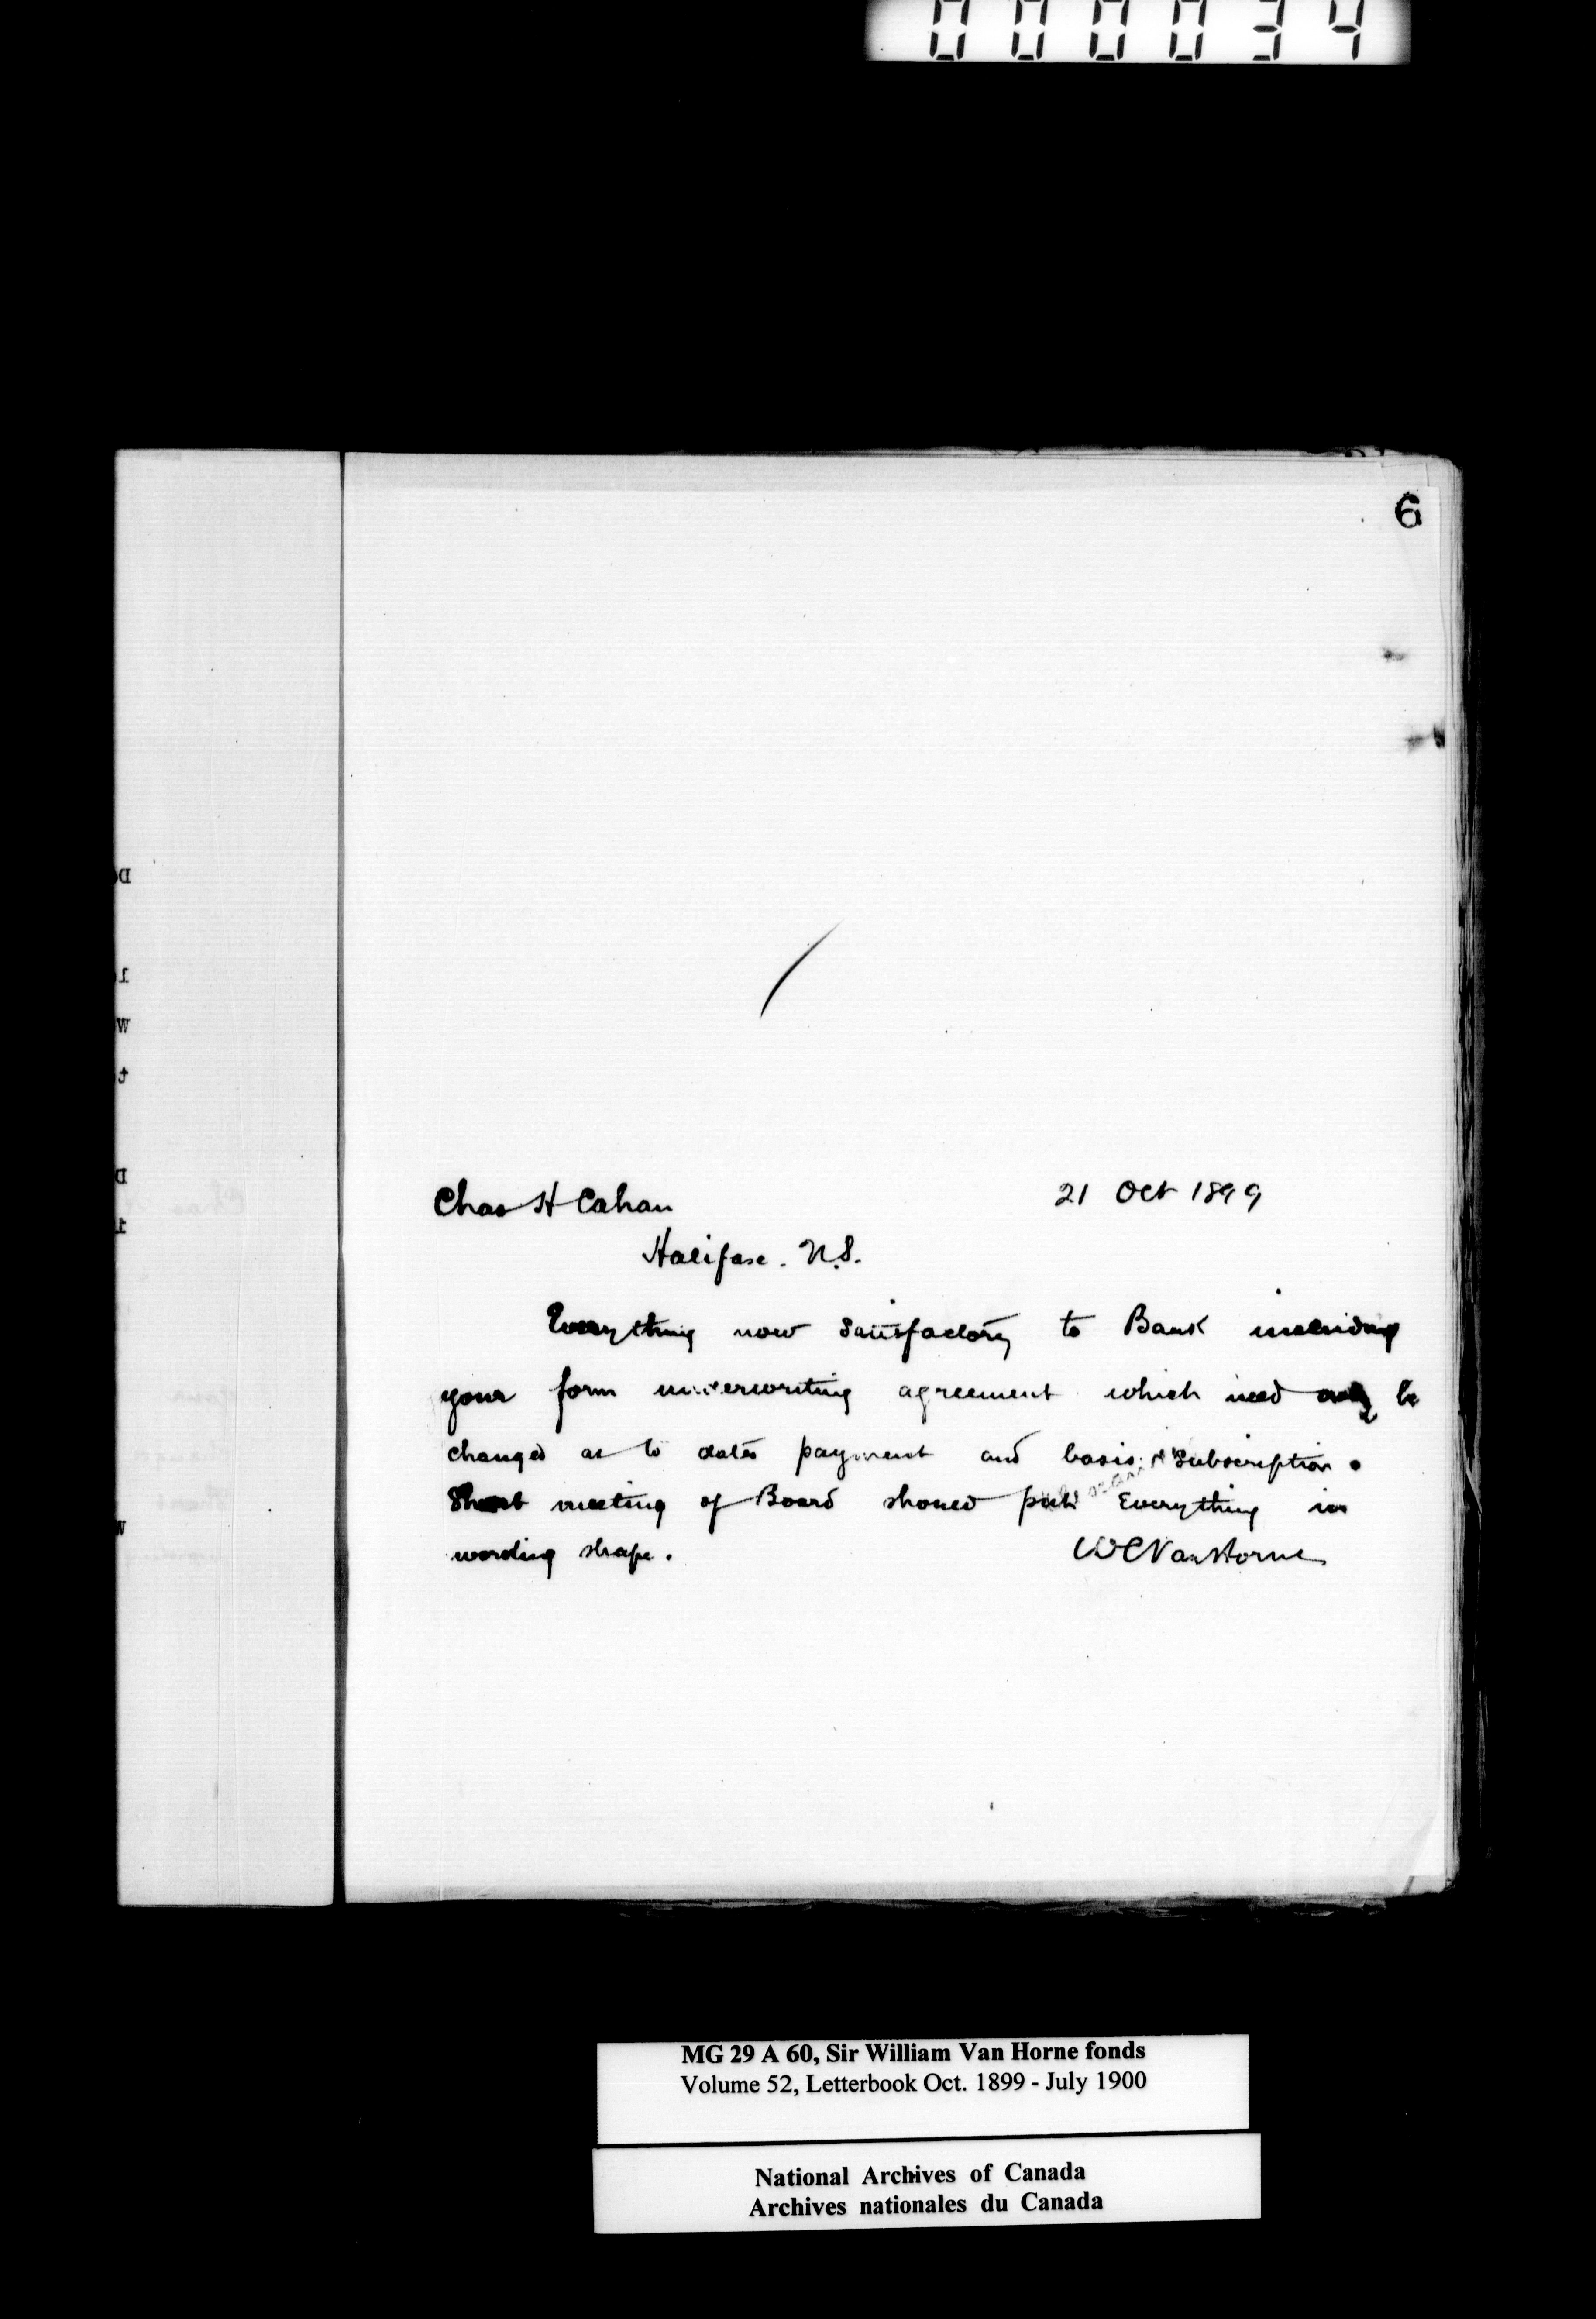 000034
6
Chas H Cahan
21 Oct 1899
Halifax. N.S.
Everything now satisfactory to Bank including
your form underwriting agreement which need only be
changed as to dates payment and basis subscription.
Short meeting of Board should put Everything in
working shape.
WCVanHorne
MG 29 A 60, Sir William Van Horne fonds
Volume 52, Letterbook Oct. 1899 - July 1900
National Archives of Canada
Archives nationales du Canada